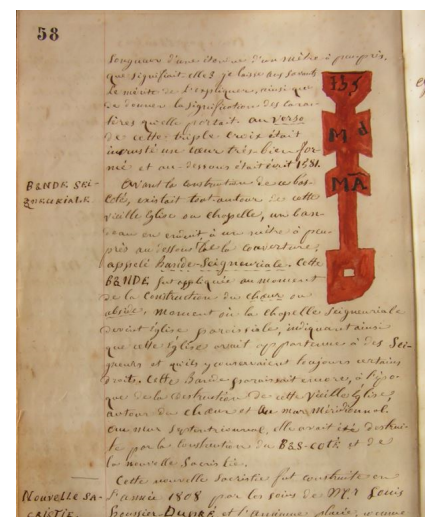 58
longueur d'une étendue d'un mètre à peu près,
que signifiait-elle? je laisse aux savants
le mérite de l'expliquer, ainsi que
de donner la signification des carac-
tères qu'elle portait au verso
de cette triple croix était
incrusté un cœur très bien for-
mé et au-dessous était écrit 1581.
BANDE SEI-
GNEURIALE.
Avant la construction de ce bas-
Coté, existait tout autour de cette
vieille Eglise ou chapelle, un ban-
deau en enduit à un mètre à peu
près au dessous de la couverture,
appelé Bande-Seigneuriale. Cette
BANDE fut appliquée au moment
de la Construction du chœur ou
abside, moment où la Chapelle Seigneuriale
devint Eglise paroissiale, indiquant ainsi
que cette Eglise avait appartenue à des Sei-
gneurs et qu'ils y conservaient toujours certains
droits. Cette Bande paraissait encore, à l'épo-
que de la construction de cette vieille Eglise,
autour du chœur et au mur méridional.
Au mur septentrional, elle avait été détrui-
te par la construction du BAS-COTÉ et de
la nouvelle Sacristie.
NOUVELLE SA-
CRISTIE.
Cette nouvelle Sacristie fut construite en
l'année 1808 par les soins de Mr Louis
DUPRÉ et placée, comme
135
M d
MA